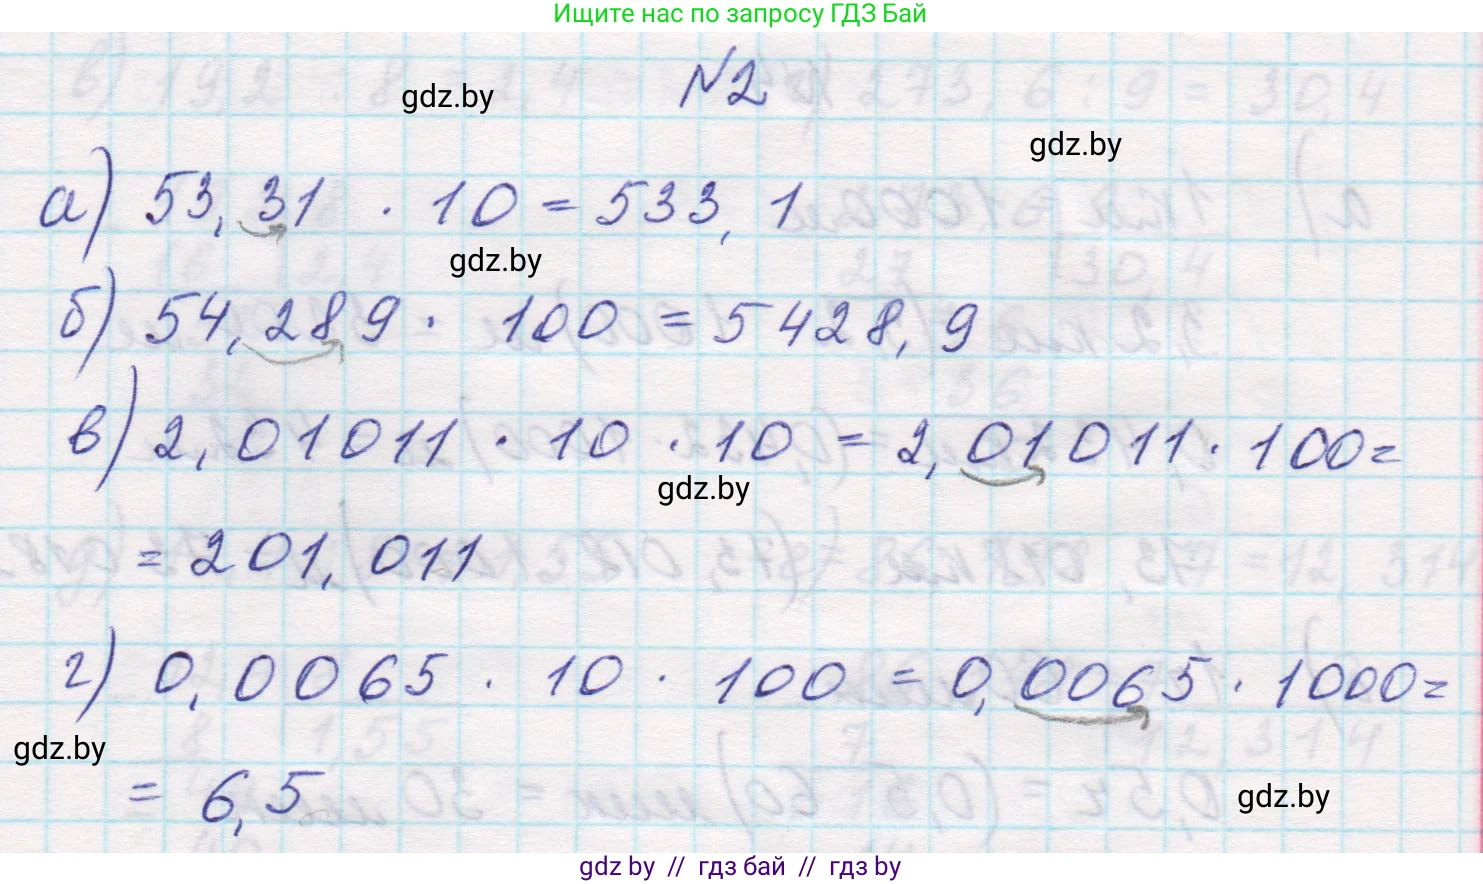 Ищите нас по запросу ГДЗ Бай
№2
gdz.by
gdz.by
а) 53,31 · 10 = 533,1
gdz.by
б) 54,289 · 100 = 5428,9
в) 2,01011 · 10 · 10 = 2,01011 · 100 =
gdz.by
= 201,011
г) 0,0065 · 10 · 100 = 0,0065 · 1000 =
gdz.by
= 6,5
gdz.by
gdz by // гдз бай // гдз by